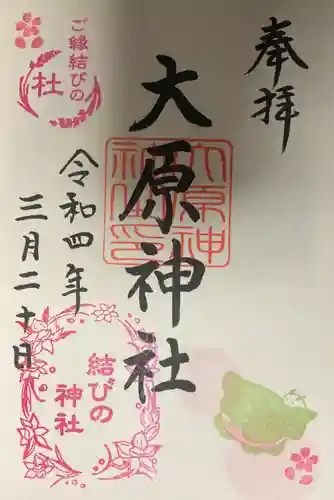 奉拝
大原神社
大原神
社印
令和四年
三月二十日
ご縁結びの
社
結びの
神社